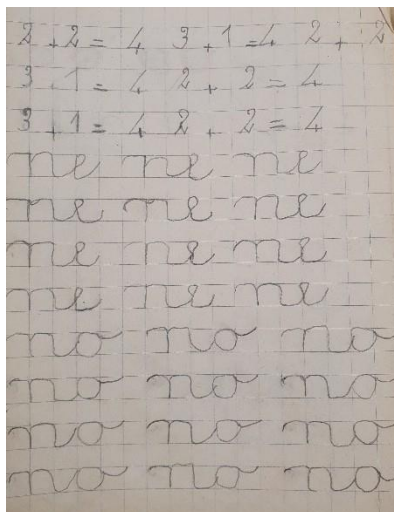 2 + 2 = 4 3 + 1 = 4 2 + 2
3 + 1 = 4 2 + 2 = 4
3 + 1 = 4 2 + 2 = 4
ne ne ne
ne ne ne
ne ne ne
ne ne ne
no no no
no no no
no no no
no no no